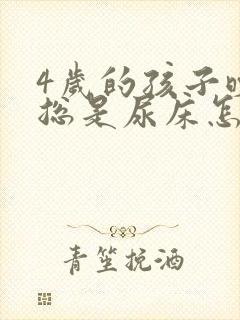 4歲的孩子晚
总是尿床怎
青笙挽酒